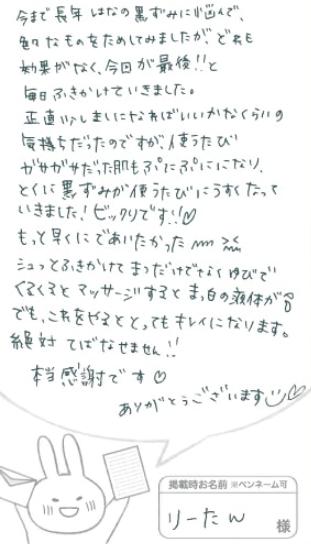 今まで長年はなの黒ずみに悩んで、
色々なものをためしてみましたが、どれも
効果がなく、今回が最後!!と
毎日ふきかけていきました。
正直いいしまいになればいいかなくらいの
気持ちだったのですが、使うたび
ガサガサだった肌もぷにぷにになり、
とくに黒ずみが使うたびにうすくなって
いきました!ビックリです!!♡
もっと早くにであいたかった
シュッとふきかけてまつだけでなくゆびで
くるくるとマッサージするとま、白の液体が
でも、これをやるととってもキレイになります。
絶対てばなせません!!
本当感謝です♡
ありがとうございます♡
掲載時お名前 ※ペンネーム可
りーたん 様